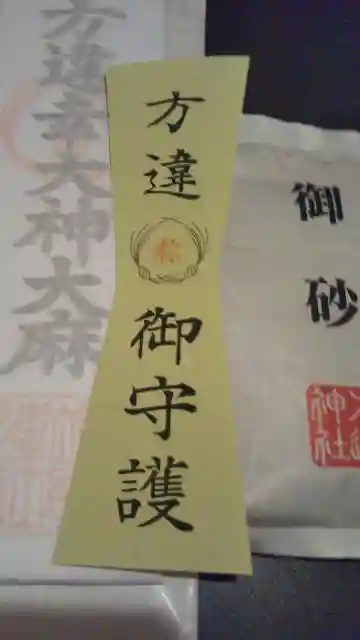 方違幸大神大麻
方違
御守護
御砂
神社